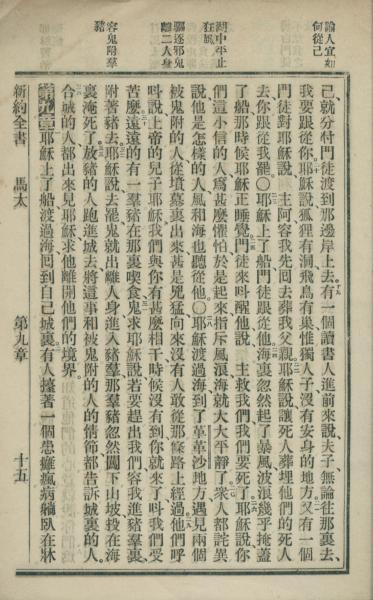 諭人宜如
何從己
海中平止
狂風
驅逐邪鬼
離二人身
容鬼附羣
豬
己就分付門徒渡到那邊岸上去、有一個讀書人進前來、說、夫子無論往那裏去、
我要跟從你、耶穌說、狐狸有洞、飛鳥有巢、惟獨人子沒有安身的地方、又有一個
門徒對耶穌說、主阿、容我先回去葬我父親、耶穌說、讓死人葬埋他們的死人
去、你跟從我罷○耶穌上了船、門徒跟從他、海裏忽然起了暴風、波浪幾乎掩蓋
了船、那時候耶穌正睡覺、門徒來叫醒他、說、主救我們、我們要死了、耶穌說、你
們這小信的人、爲甚麼懼怕、於是起來指斥風浪、海就大大平靜了、衆人都詫異
說、他是怎樣的人、風和海也聽從他○耶穌渡過海到了革革沙地方、遇見兩個
被鬼附的人、從墳墓裏出來、甚是兇猛、向來沒有人敢從那條路上經過、他們呼
呌說、上帝的兒子耶穌、我們與你有甚麼相干、時候沒有到、你就來了呌我們受
苦麼、遠遠的有一羣豬在那裏喫食、鬼求耶穌說、若要趕出我們、容我進豬羣裏、
附著豬去、耶穌說、去罷、鬼就出離人身、進入豬羣、那羣豬忽然闖下山坡、投在海
裏淹死了、放豬的人跑進城去、將這事和被鬼附的人的情節、都告訴城裏的人、
合城的人都出來見耶穌、求他離開他們的境界。
第九章 耶穌上了船、渡過海、回到自己城裏、有人擡著一個患癱瘋病躺臥在牀
新約全書 馬太 第九章 十五